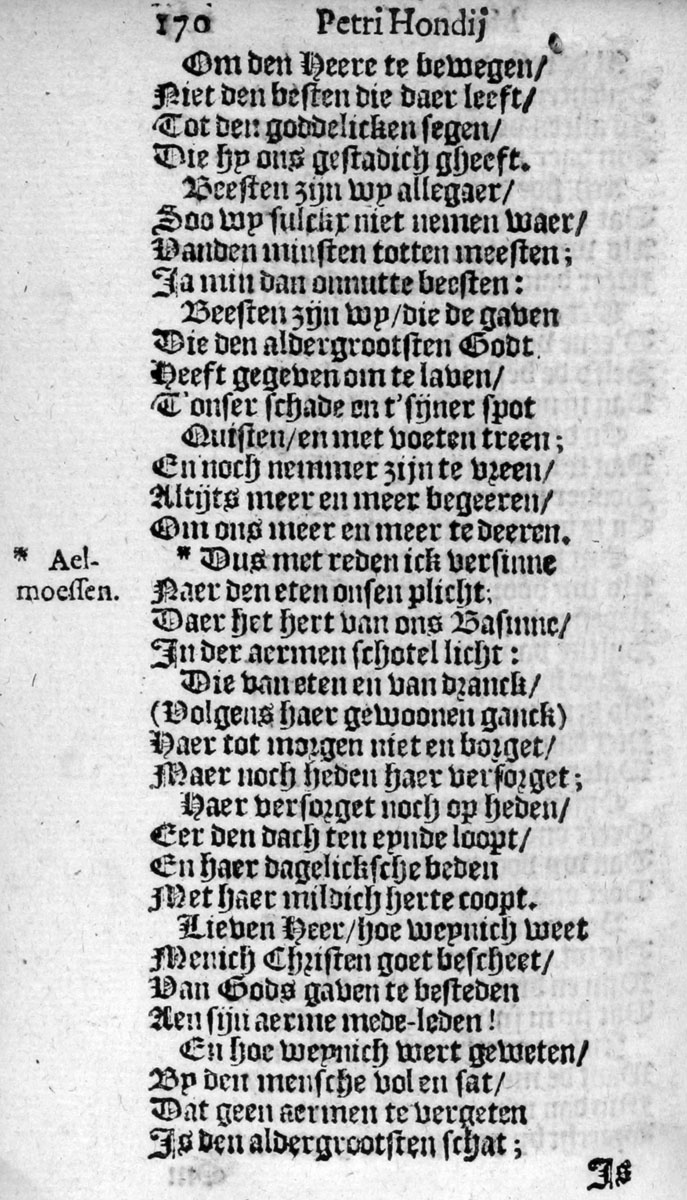 170 Petri Hondij
Om den Heere te bewegen/
Niet den besten die daer leeft/
Tot den goddelicken segen/
Die hy ons gestadich gheeft.
Beesten zijn wy allegaer/
Soo wy sulckx niet nemen waer/
Vanden minsten totten meesten;
Ja min dan onnutte beesten:
Beesten zijn wy/die de gaven
Die den aldergrootsten Godt
Heeft gegeven om te laven/
T'onser schade en t'sijner spot
Quisten/en met voeten treen;
En noch nemmer zijn te vreen/
Altijts meer en meer begeeren/
Om ons meer en meer te deeren.
* Ael-
moessen.
* Dus met reden ick versinne
Naer den eten onsen plicht;
Daer het hert van ons Basinne/
In der aermen schotel licht:
Die van eten en van dranck/
(Volgens haer gewoonen ganck)
Haer tot morgen niet en borget/
Maer noch heden haer versorget;
Haer versorget noch op heden/
Eer den dach ten eynde loopt/
En haer dagelicksche beden
Met haer mildich herte coopt.
Lieven Heer/hoe weynich weet
Menich Christen goet bescheet/
Van Gods gaven te besteden
Aen sijn aerme mede-leden!
En hoe weynich wert geweten/
By den mensche vol en sat/
Dat geen aermen te vergeten
Is den aldergrootsten schat;
Is